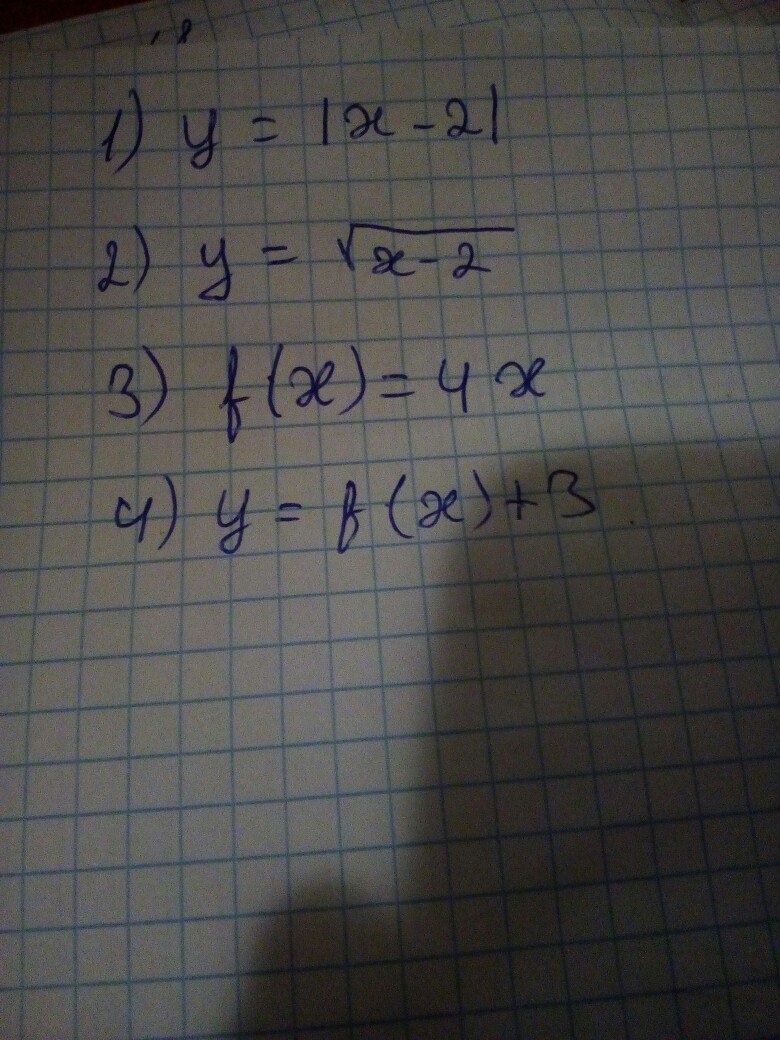 1) y = |x - 2|
2) y = √x-2
3) f(x) = 4x
4) y = f(x) + 3